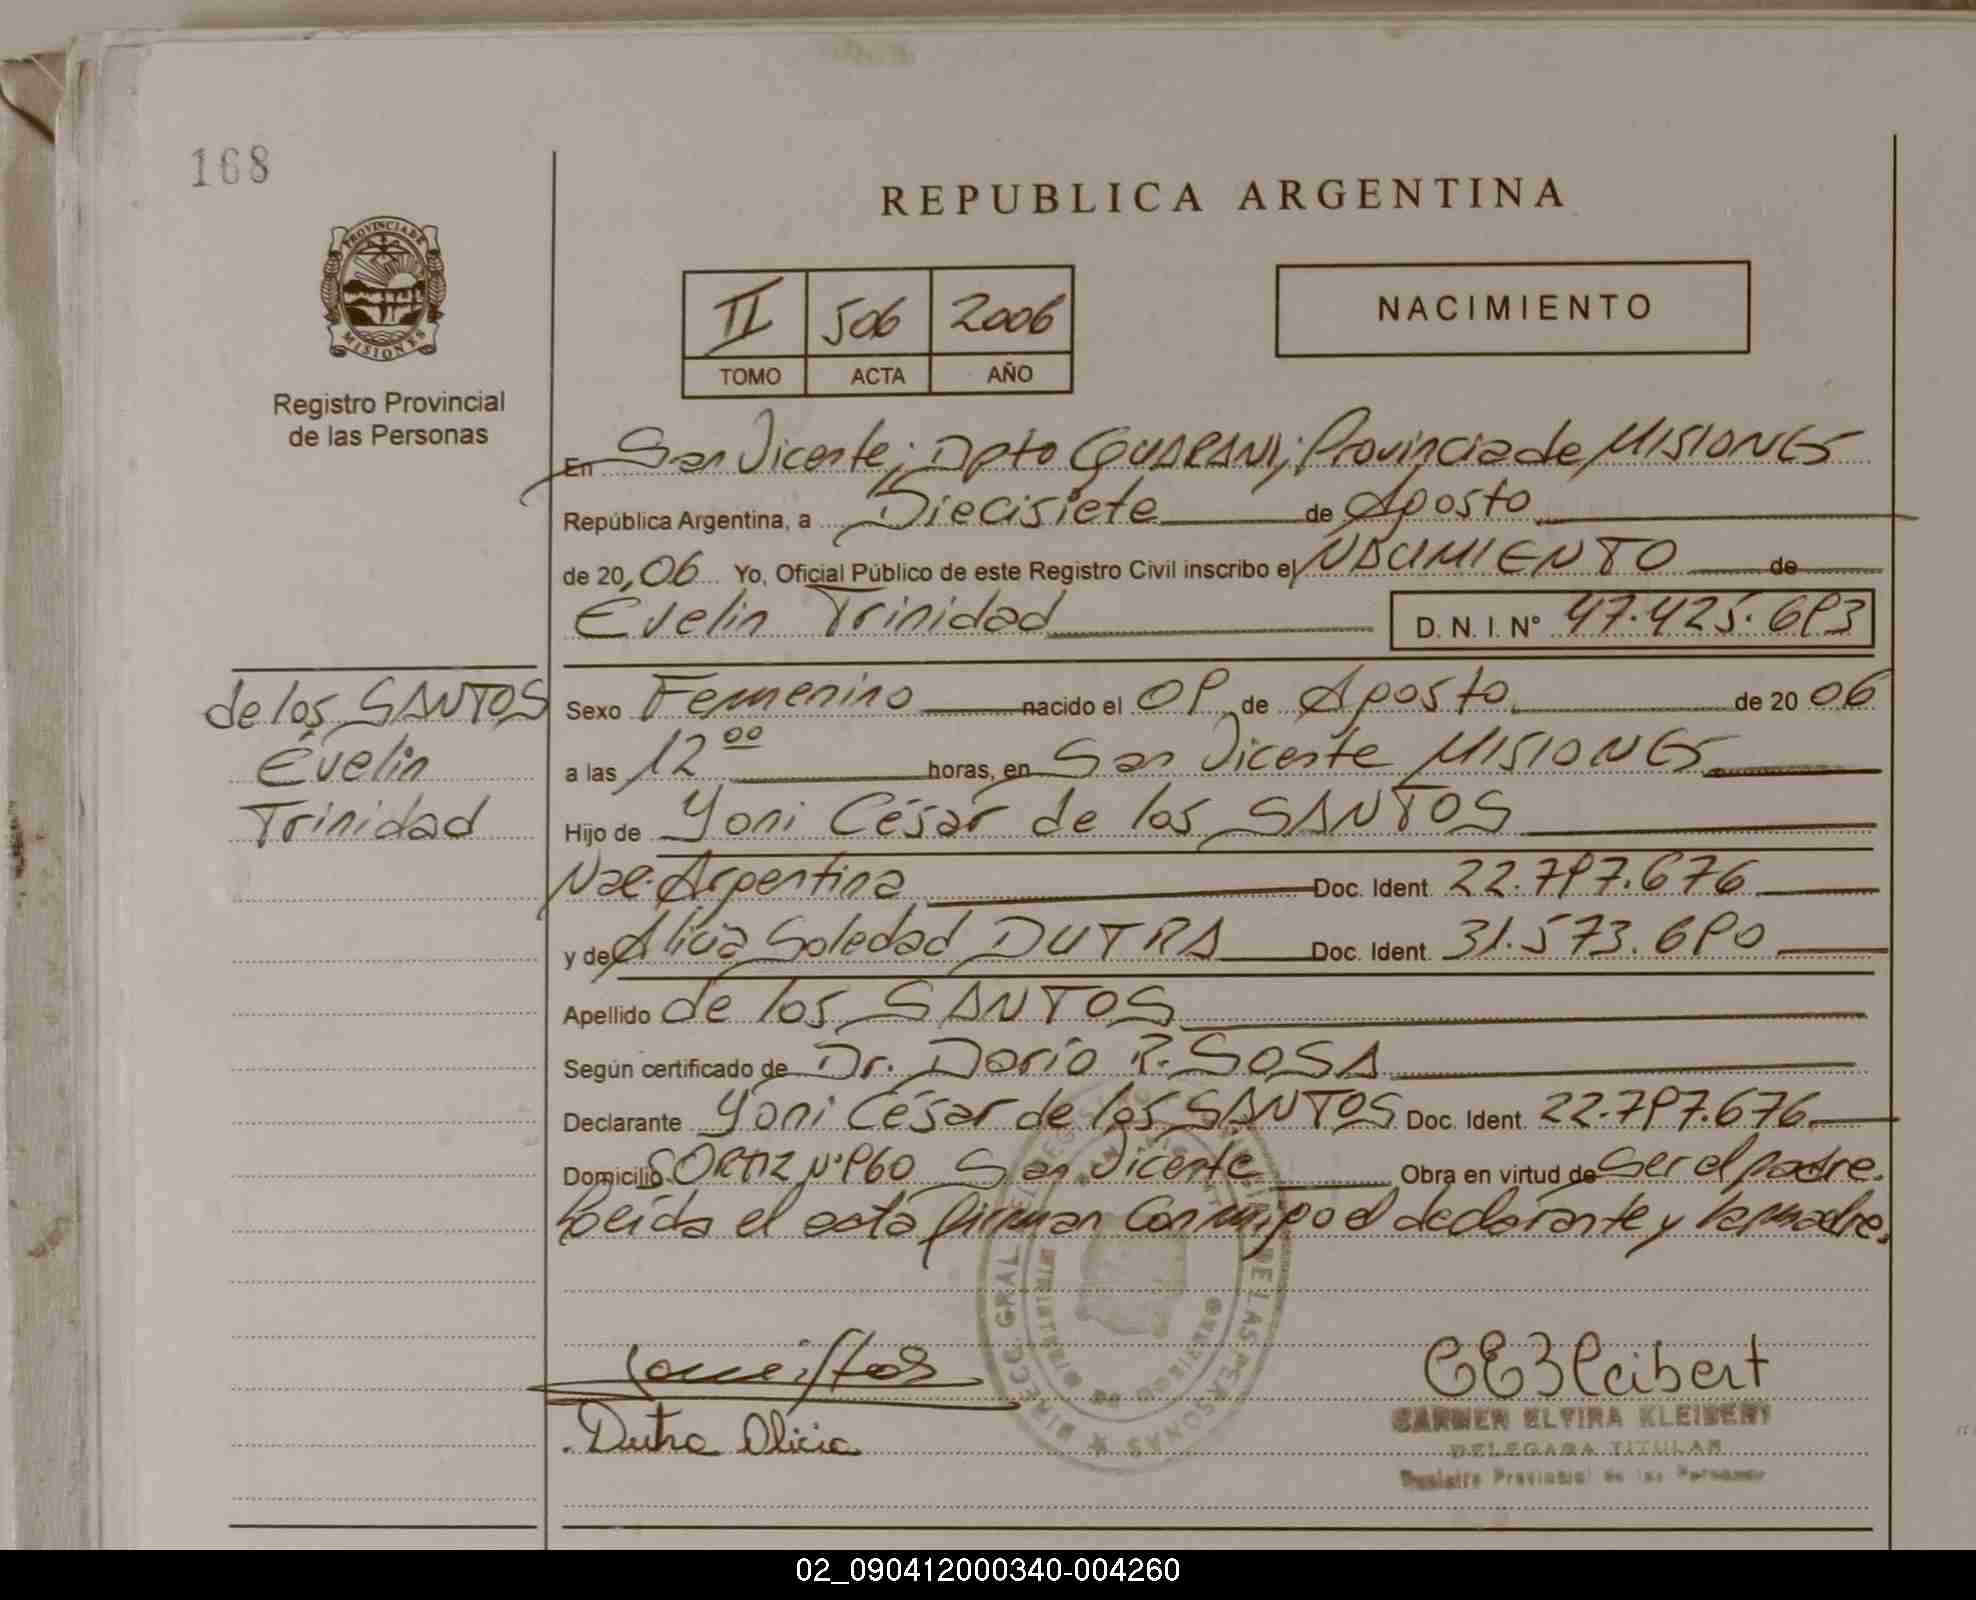 168
REPUBLICA ARGENTINA
PROVINCIA DE MISIONES
II 506 2006
TOMO ACTA AÑO
NACIMIENTO
Registro Provincial
de las Personas
En San Vicente; Dpto GUARANI; Provincia de MISIONES
República Argentina, a Diecisiete de Agosto
de 2006 Yo, Oficial Público de este Registro Civil inscribo el NACIMIENTO de
Evelin Trinidad D. N. I. N° 47.425.693
de los SANTOS
Evelin
Trinidad
Sexo Femenino nacido el 09 de Agosto de 2006
a las 12 00 horas, en San Vicente MISIONES
Hijo de Yoni César de los SANTOS
Nac. Argentina Doc. Ident. 22.797.676
y de Alicia Soledad DUTRA Doc. Ident. 31.573.690
Apellido de los SANTOS
Según certificado de Dr. Darío R. SOSA
Declarante Yoni César de los SANTOS Doc. Ident. 22.797.676
Domicilio S. ORTIZ N° 960 San Vicente Obra en virtud de Ser el padre.
Leída el acta firman conmigo el declarante y la madre.
DIRECC. GRAL. DEL REGISTRO DE LAS PERSONAS
Dutra Alicia
CEKleibert
CARMEN ELVIRA KLEIBERT
DELEGADA TITULAR
Registro Provincial de las Personas
02_090412000340-004260